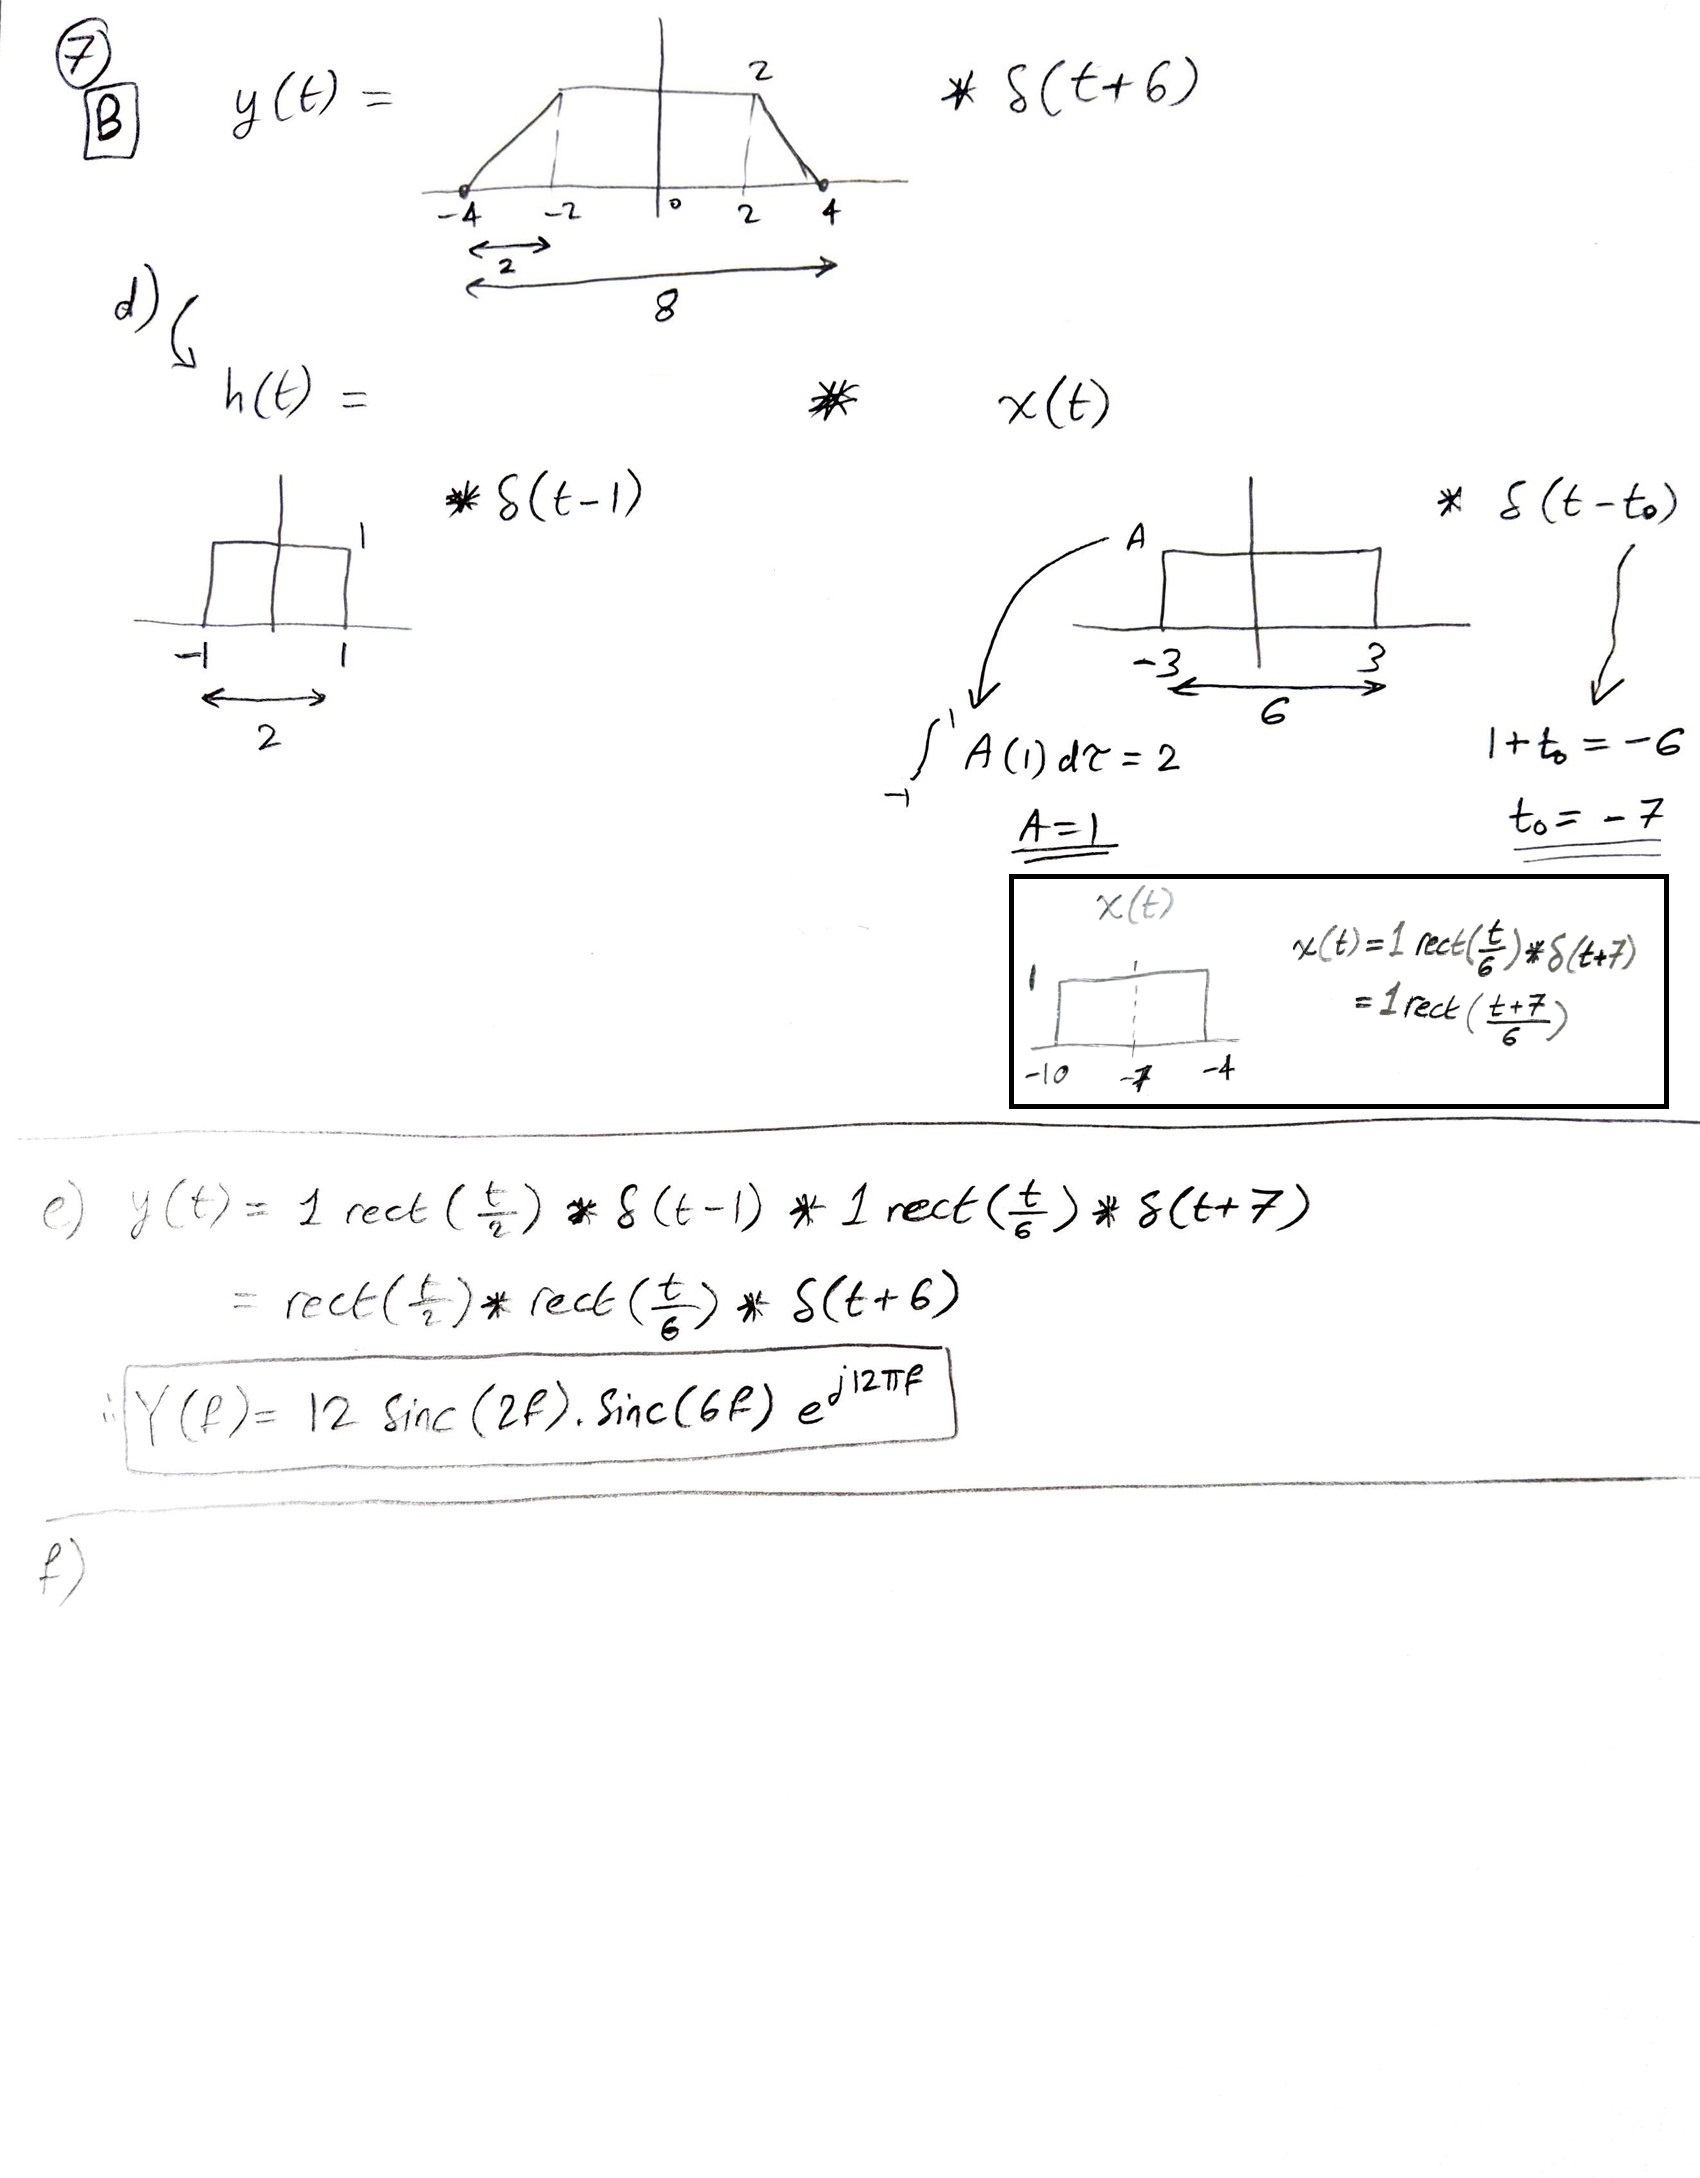 7
B
y(t) = 2 * δ(t+6)
-4 -2 0 2 4
2
8
d)
h(t) = * x(t)
* δ(t-1)
1
-1 1
2
A * δ(t-t₀)
-3 3
6
∫₋₁¹ A(1) dτ = 2
A = 1
1+t₀ = -6
t₀ = -7
x(t)
1
-10 -7 -4
x(t) = 1 rect(t/6) * δ(t+7)
= 1 rect((t+7)/6)
e) y(t) = 1 rect(t/2) * δ(t-1) * 1 rect(t/6) * δ(t+7)
= rect(t/2) * rect(t/6) * δ(t+6)
∴ Y(f) = 12 Sinc(2f). Sinc(6f) e^{j12πf}
f)